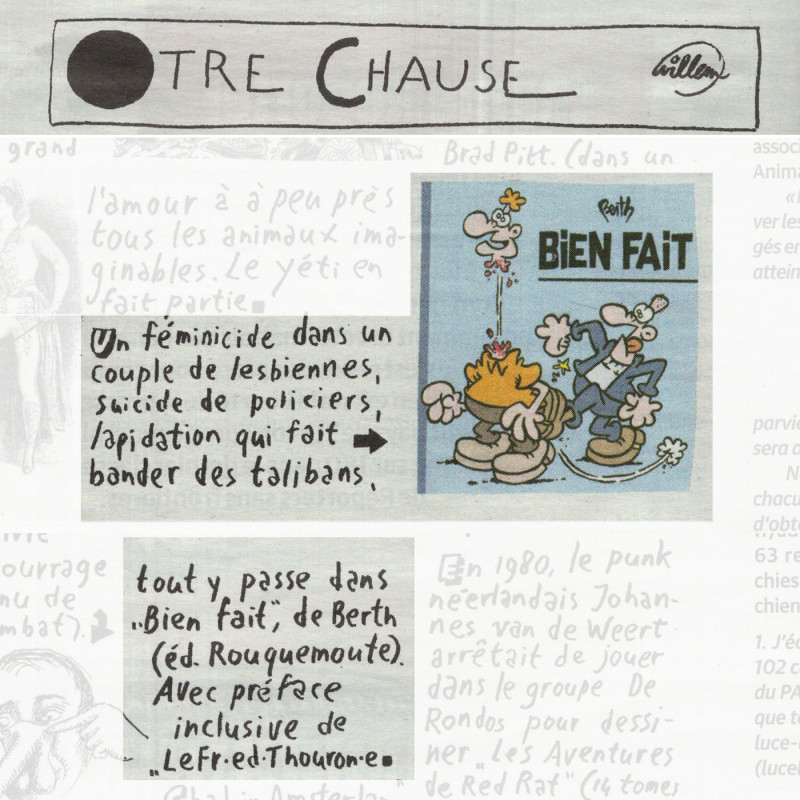 OTRE CHAUSE
Willem
grand
Brad Pitt. (dans un
l'amour à à peu près
tous les animaux ima-
ginables. Le yéti en
fait partie
Berth
BIEN FAIT
Un féminicide dans un
couple de lesbiennes,
suicide de policiers,
lapidation qui fait
bander des talibans,
tout y passe dans
„Bien fait", de Berth
(éd. Rouquemoute).
Avec préface
inclusive de
„LeFr·ed·Thouron·e
ouvrage
nu de
mbat).
En 1980, le punk
néerlandais Johan-
nes van de Weert
arrêtait de jouer
dans le groupe De
Rondos pour dessi-
ner „Les Aventures
de Red Rat" (14 tomes
associ
Anima
«
ver les
gés en
attein
parvie
sera a
N
chacu
d'obte
63 re
chies
chien
1. J'éc
102 c
du PA
que to
luce-l
(lucel